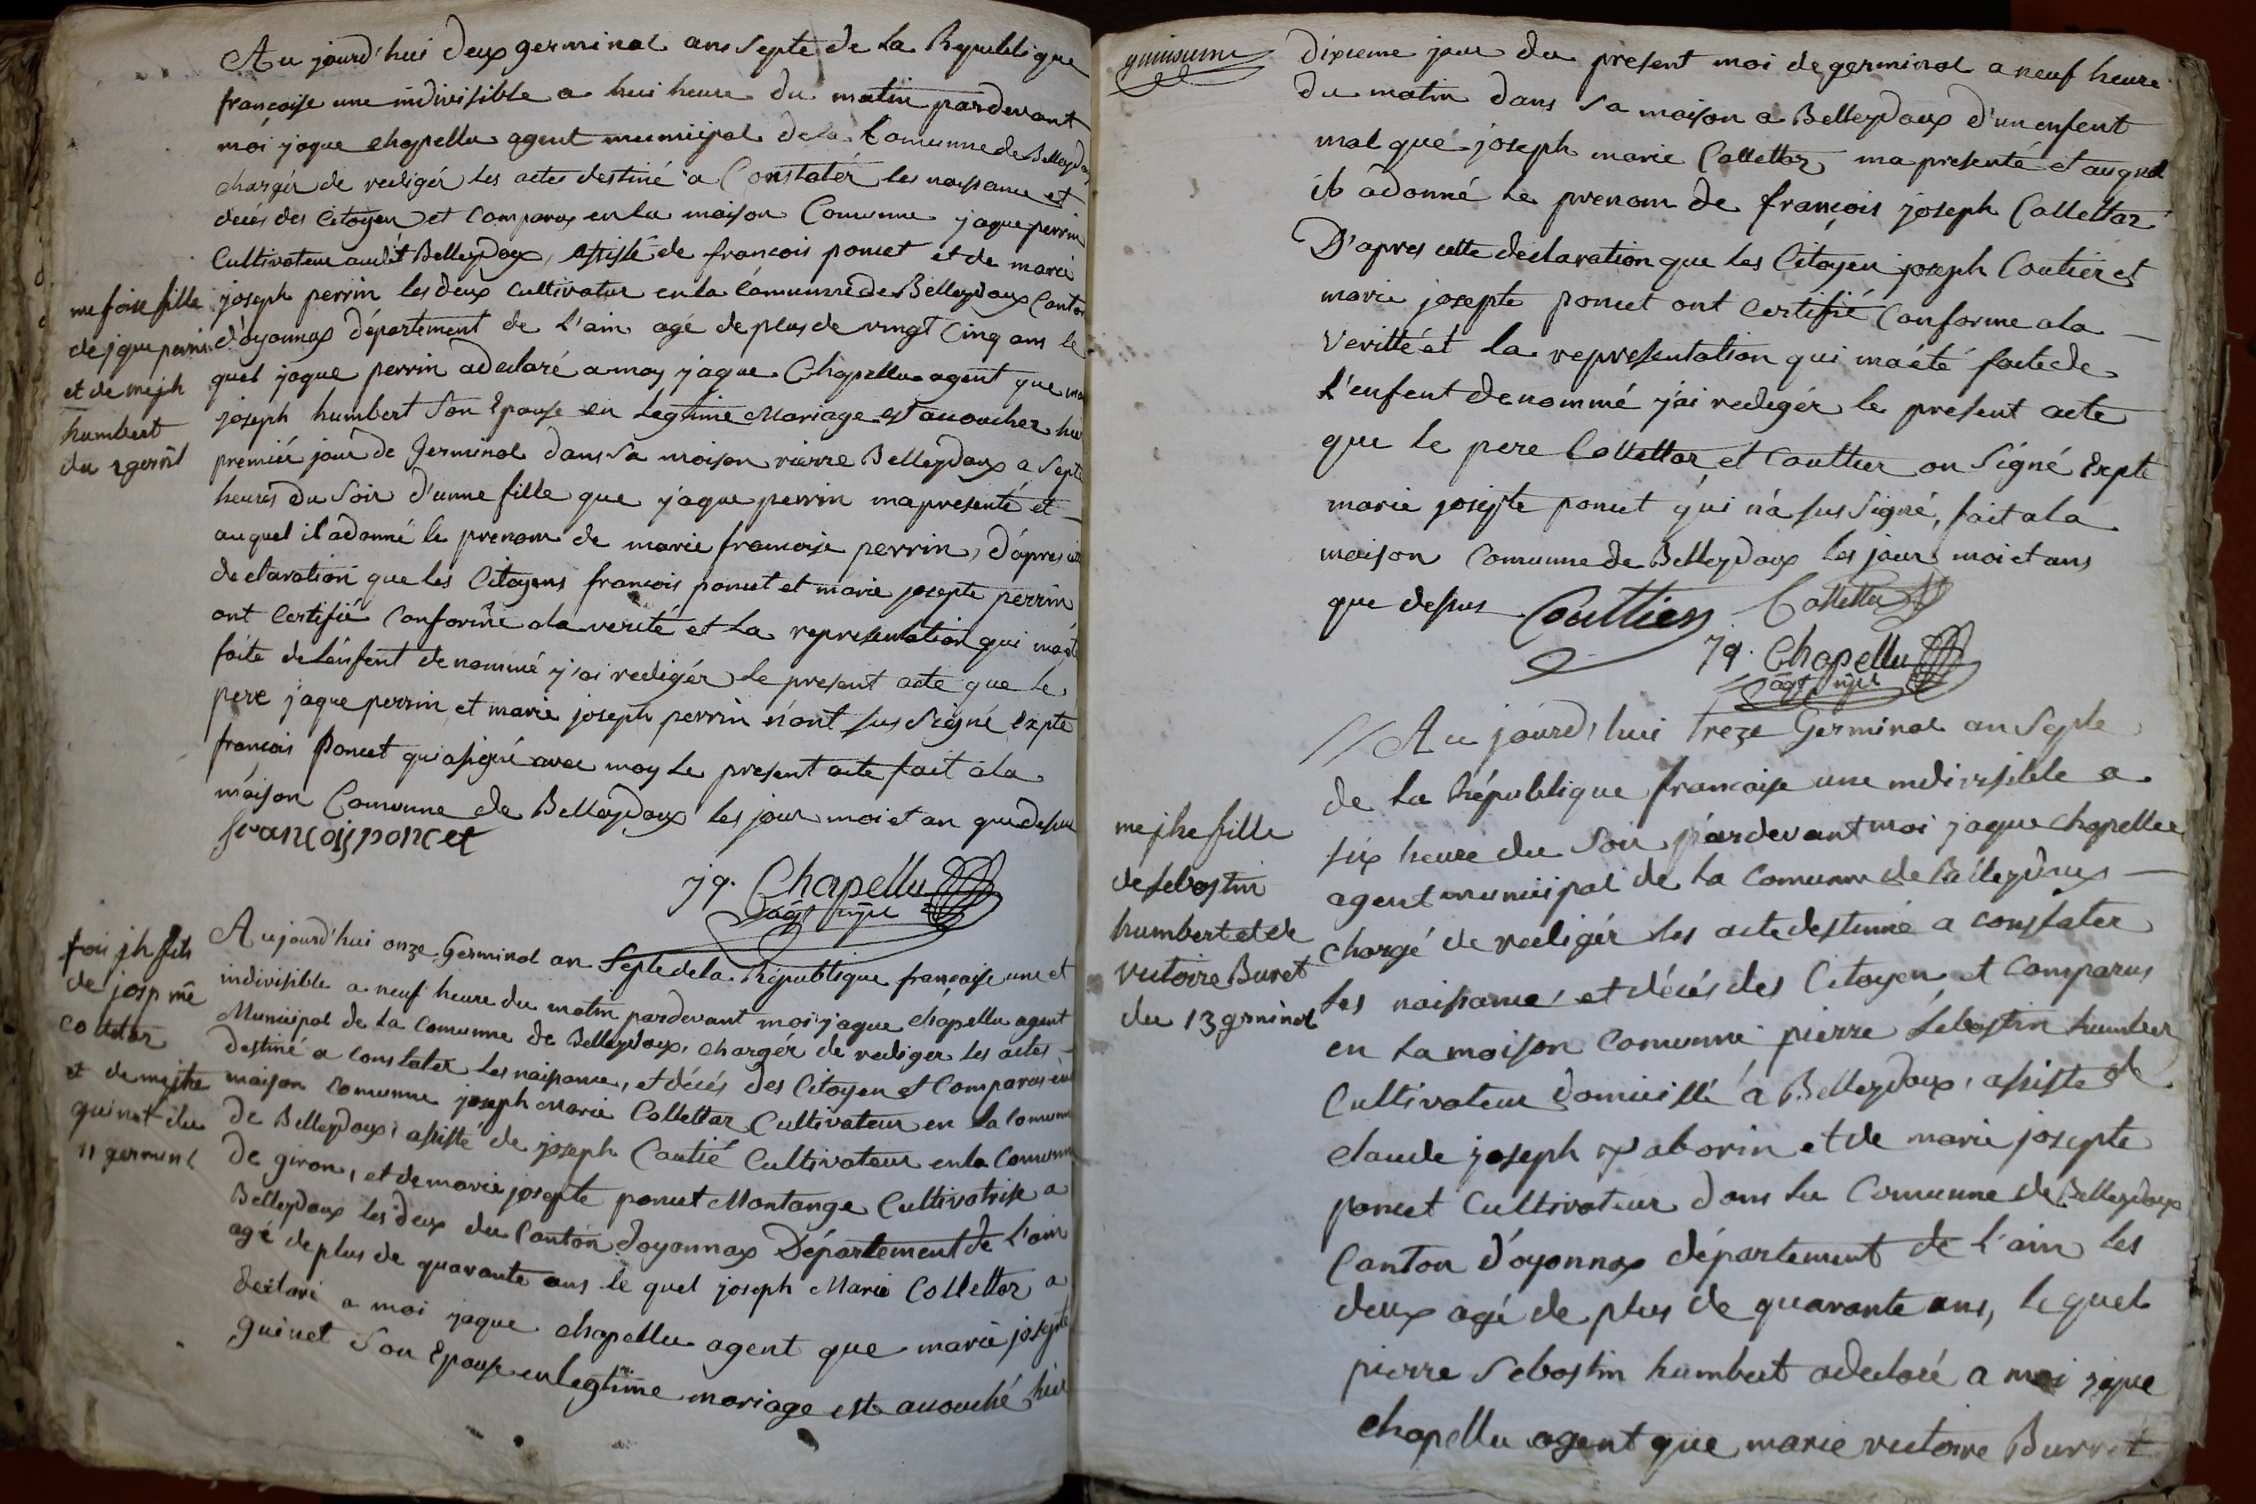 Au jourd'hui deux germinal ans septe de la Republique
francoise une indivisible a hui heure du matin pardevant
moi jaque chapellu agent municipal de la Comunne de Belleydoux
chargér de redigér les actes destiné a Constatér les naissance et
décés des Citoyen et Comparus en la maison Comunne jaque perrin
Cultivateur audit Belleydoux, assisté de françois poncet et de marie
me foise fille
de jque perrin
et de me jph
humbert
du 2 germl
joseph perrin les deux cultivateur en la Comunne de Belleydoux Canton
d'oyonnax département de l'ain agé de plus de vingt Cinq ans le
quel jaque perrin a declaré a moy jaque Chapellu agent que marie
joseph humbert son Epouse en legtime Mariage est accouchez hier
premiér jour de Germinal dans sa maison rierre Belleydoux a septe
heures du soir d'unne fille que jaque perrin ma presenté et
auquel il a donné le prenom de marie francoise perrin, d'apres cette
declaration que les Citoyens francois poncet et marie josepte perrin
ont Certifié Conforme a la verité et la representation qui ma été
faite de l'enfent denommé j'ai redigér le present acte que le
pere jaque perrin et marie joseph perrin n'ont sus signé Expte
françois Poncet qui a signé avec moy le present acte fait a la
maison Comunne de Belleydoux les jour moi et an que dessus
françois poncet
Jq. Chapellu
agt mpl
fois jh fils
de josp me
Collettaz
et de me jthe
guinet du
11 germinl
Aujourd'hui onze Germinal an Septe de la République françoise une et
indivisible a neuf heure du matin pardevant moi jaque chapellu agent
Municipal de la Comunne de Belleydoux, chargér de rediger les actes
destiné a constater les naissance, et décés des Citoyen et Comparus en la
maison Comunne joseph Marie Collettaz Cultivateur en la Comunne
de Belleydoux, assisté de joseph Coutié Cultivateur en la Comunne
de giron, et de marie josepte poncet Montange Cultivatrise a
Belleydoux les deux du Canton d'oyonnax Département de l'ain
agé de plus de quarante ans le quel joseph Marie Collettaz a
declaré a moi jaque chapellu agent que marie josepte
guinet son Epouse en legtime mariage est accouché hier
dixieme jour du present moi de germinal a neuf heure
du matin dans sa maison a Belleydoux d'un enfent
mal que joseph marie Collettaz ma presenté et auquel
il a donné le prenom de françois joseph Collettaz
D'apres cette declaration que les Citoyen joseph Coutier et
marie josepte poncet ont Certifié Conforme a la
veritté et la representation qui ma été faite de
l'enfent denommé j'ai redigér le present acte
que le pere Collettaz et Couttier on signé Expte
marie josepte poncet qui n'a sus signé, fait a la
maison Comunne de Belleydoux les jour moi et ans
que dessus Couttier Collettaz
Jq. Chapellu
agt mpl
me jhe fille
de sebostin
humbert et de
victoire Buret
du 13 germinol
// Au jourd'hui treze Germinal an Septe
de la République francoise une indivisible a
six heure du soir pardevant moi jaque chapellu
agent municipal de la Comunne de Belleydoux
chargé de redigér les acte destinné a constater
les naissance, et décés des Citoyen et Comparus
en la maison Comunne pierre sebostin humber
Cultivateur domicillié a Belleydoux, assisté de
claude joseph xaborin et de marie josepte
poncet Cultivateur dans la Comunne de Belleydoux
Canton d'oyonnax département de l'ain les
deux agé de plus de quarante ans, le quel
pierre sebostin humbert a declaré a moi jaque
chapellu agent que marie victoire Burret